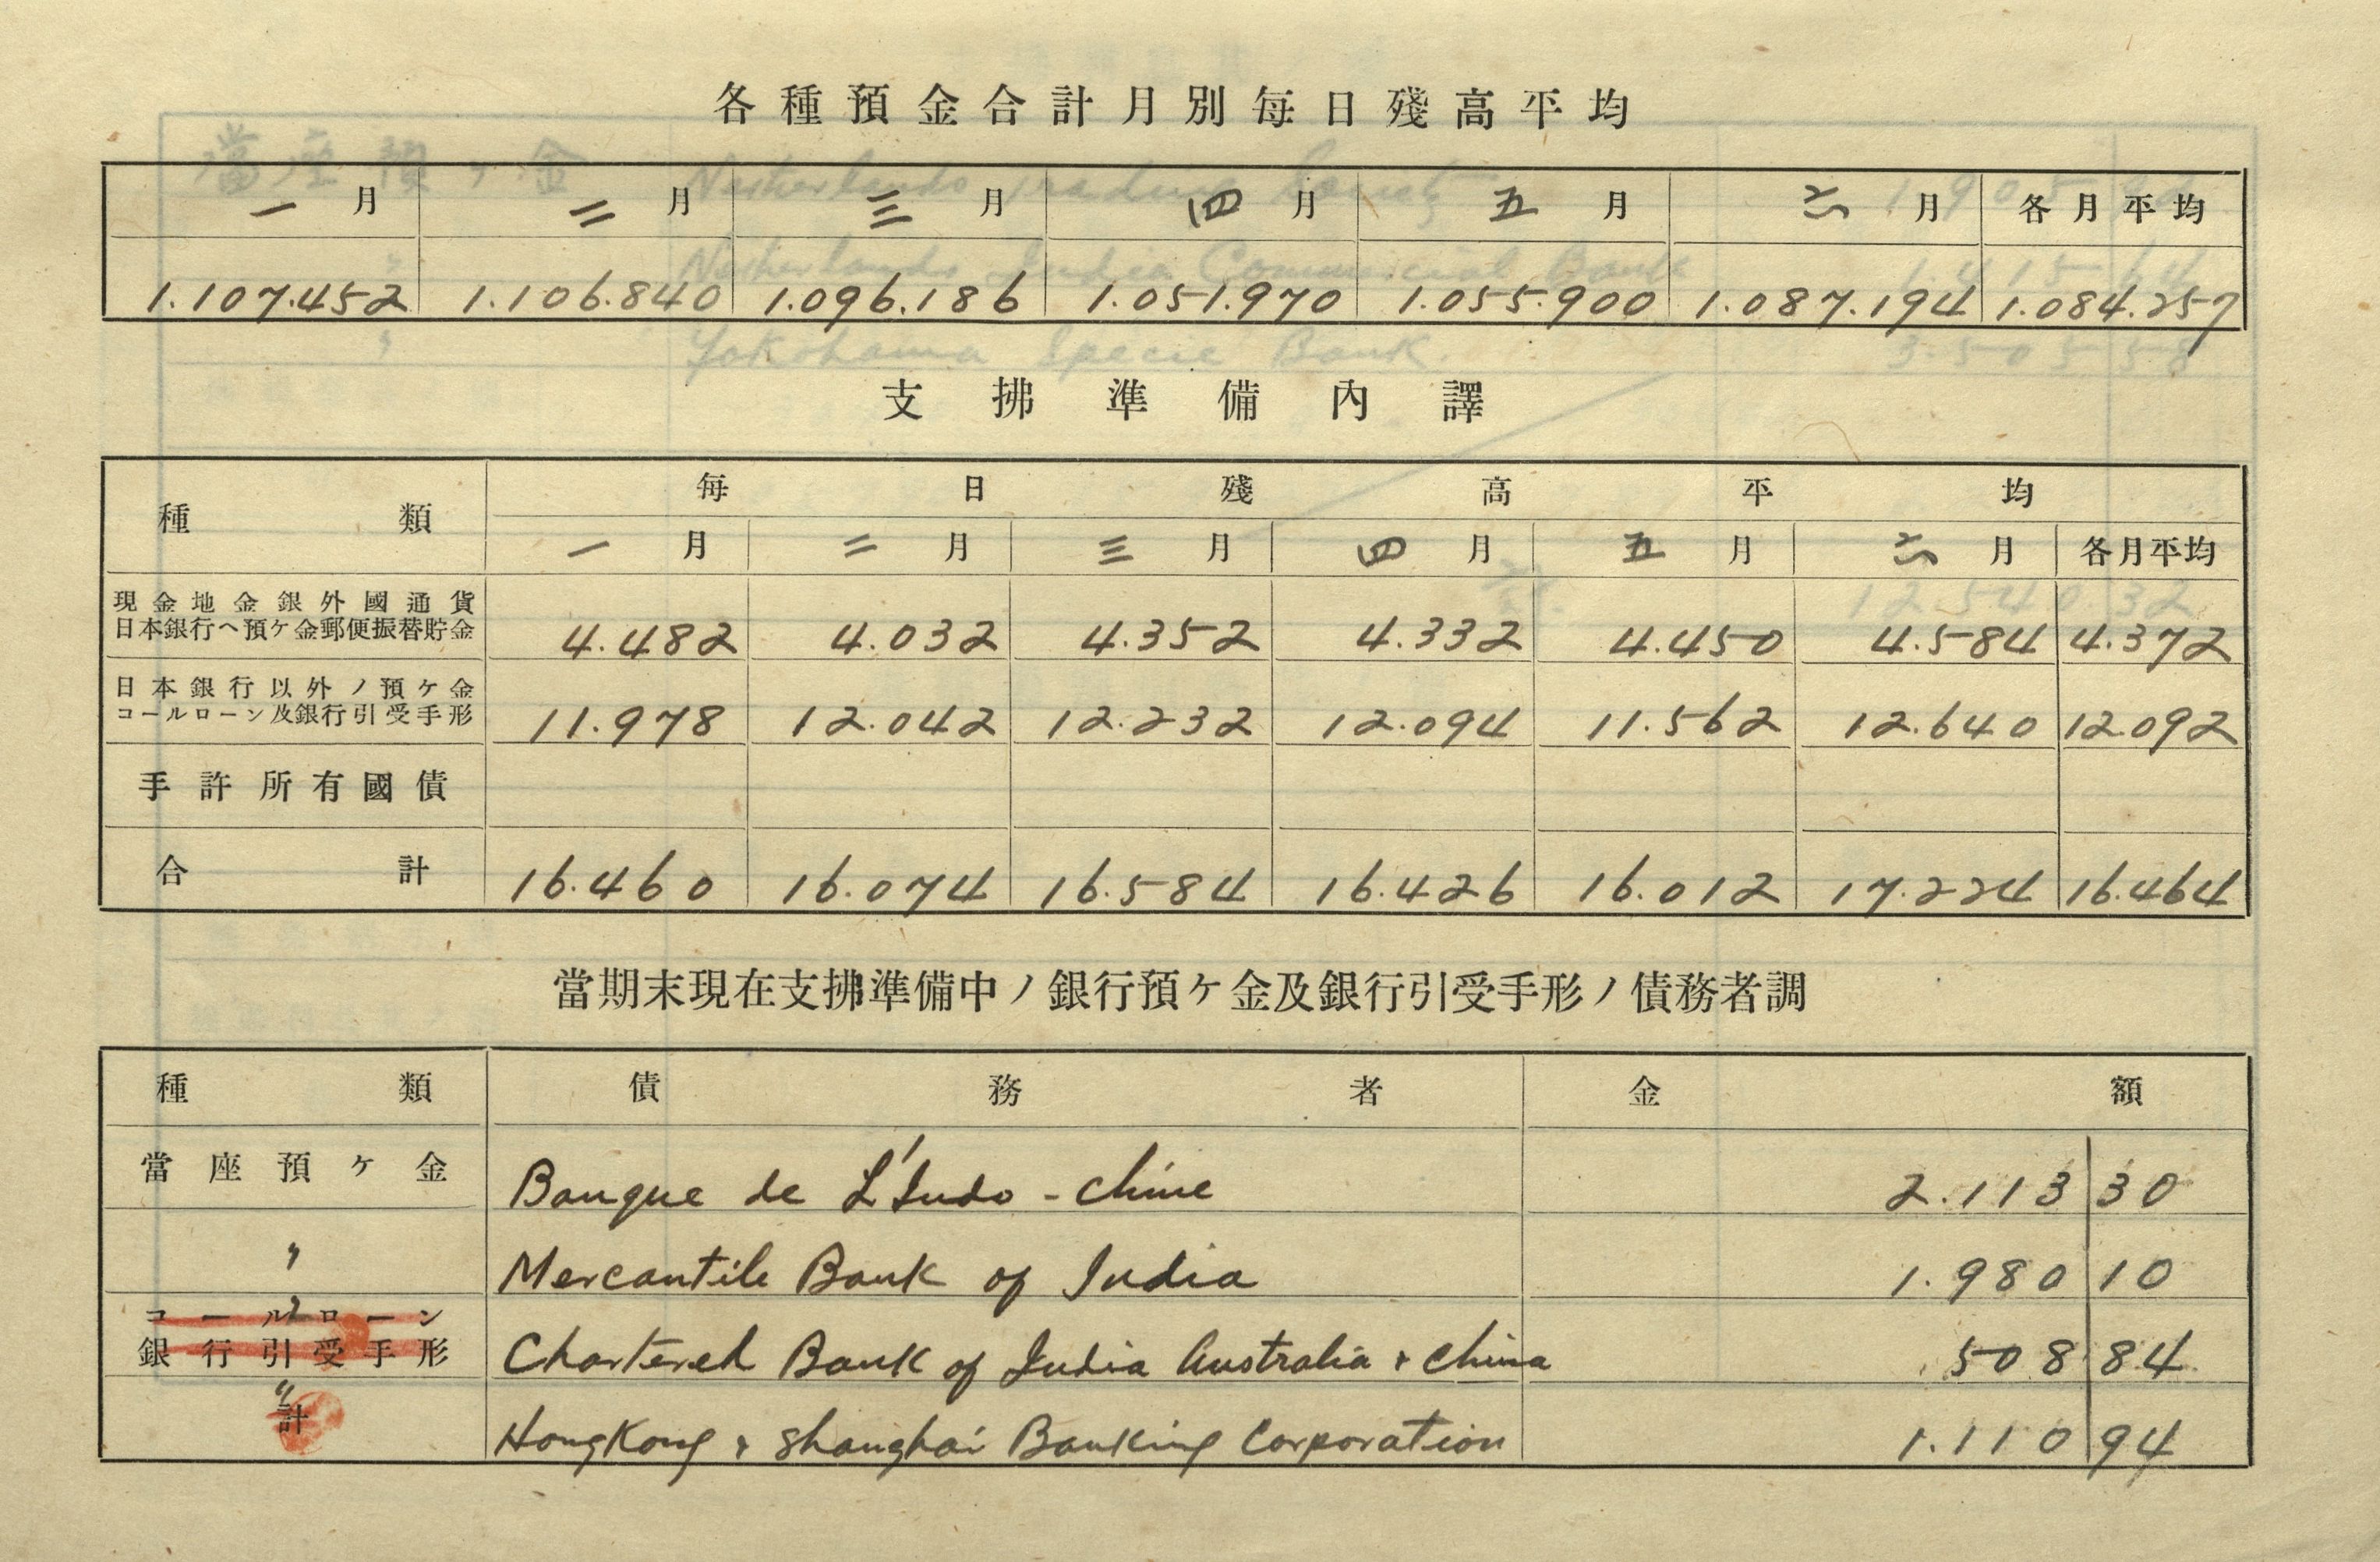 各種預金合計月別每日殘高平均
一月 二月 三月 四月 五月 六月 各月平均
1.107.452 1.106.840 1.096.186 1.051.970 1.055.900 1.087.194 1.084.257
支拂準備內譯
種類 每日殘高平均
一月 二月 三月 四月 五月 六月 各月平均
現金地金銀外國通貨
日本銀行ヘ預ケ金郵便振替貯金 4.482 4.032 4.352 4.332 4.450 4.584 4.372
日本銀行以外ノ預ケ金
コールローン及銀行引受手形 11.978 12.042 12.232 12.094 11.562 12.640 12.092
手許所有國債
合計 16.460 16.074 16.584 16.426 16.012 17.224 16.464
當期末現在支拂準備中ノ銀行預ケ金及銀行引受手形ノ債務者調
種類 債務者 金額
當座預ケ金 Banque de L'Indo-chine 2.113 30
〃 Mercantile Bank of India 1.980 10
コールローン
銀行引受手形 〃 Chartered Bank of India Australia & China 508 84
計 〃 HongKong & Shanghai Banking Corporation 1.110 94